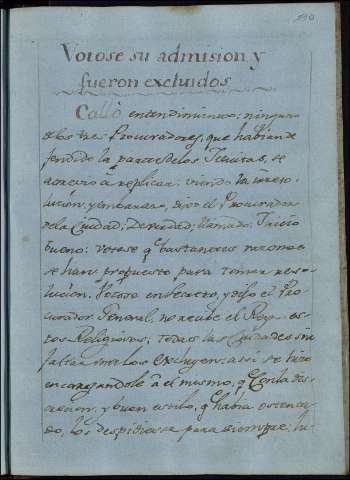 Votose su admision y
fueron excluidos
Callò entendimiento: ninguno
de los tres Procuradores, que habian de
fendido la parte de los Jesuitas, se
atreviò à replicar: viendo la
lucion, y embarazo, dixo el Procurador
de la Ciudad, De verdad, llamado, Juicio
bueno: votese q bastantes razones
se han propuesto para tomar reso-
lucion. Votose en secreto, y dijo el Pro-
curador General, no recibe el Reyno es-
tos Religiosos; todas las Ciudades sin
faltar una los excluyen: asi se hizo
encargandole à el mismo, q con la dis-
crecion, y buen estilo, q habia ostenta-
do, los despidiese para siempre: hi-